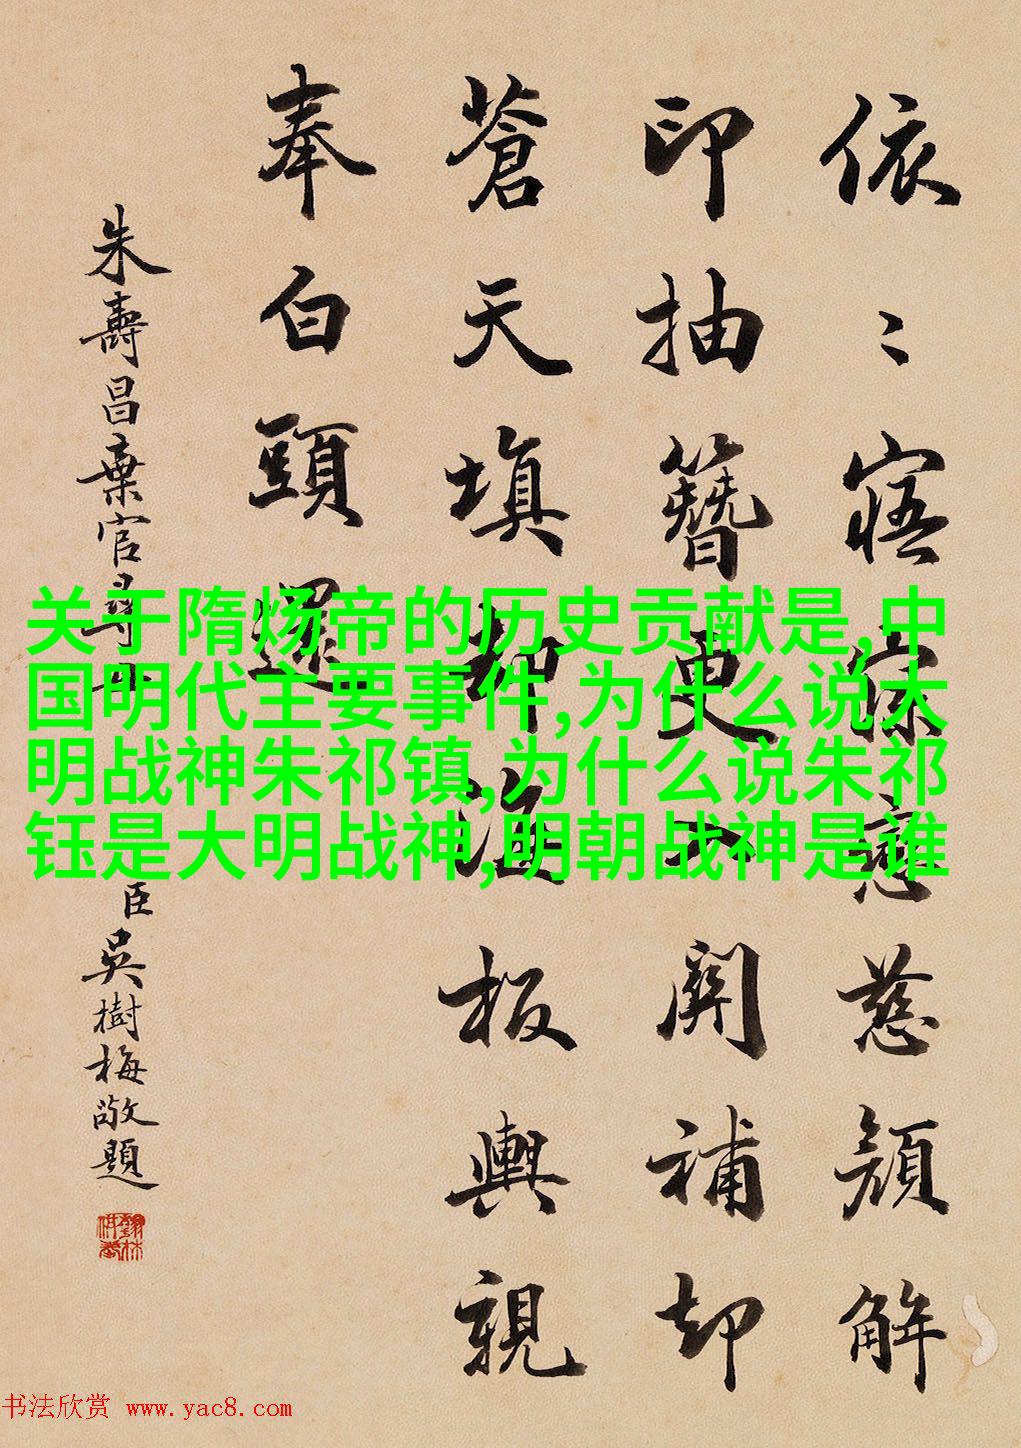 依〻寤寐戀慈顏解
印抽簪更入關補却
蒼天填却海板輿親
奉白頭還
朱壽昌棄官尋母
臣吳樹梅敬題
关于隋炀帝的历史贡献是,中
国明代主要事件,为什么说大
明战神朱祁镇,为什么说朱祁
钰是大明战神,明朝战神是谁
书法欣赏 www.yac8.com